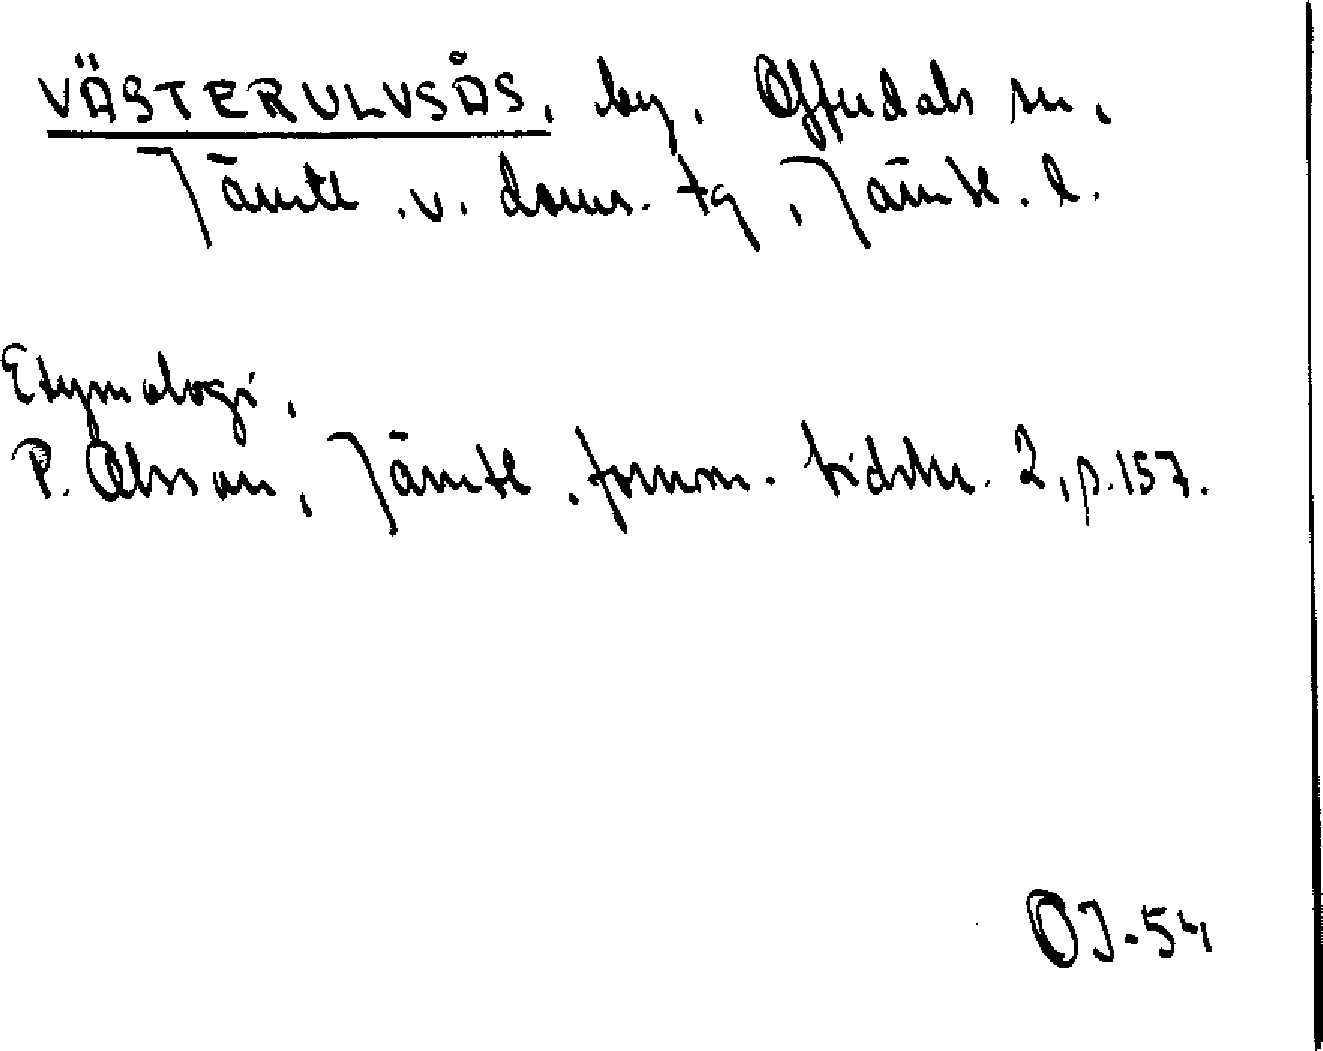 VÄSTERULVSÅS, by, Offerdals sn,
Jämtl. v. doms. tg, Jämtl. l.
Etymologi.
P. Olsson, Jämtl. fornm. tidskr. 2, p. 157.
OJ-54